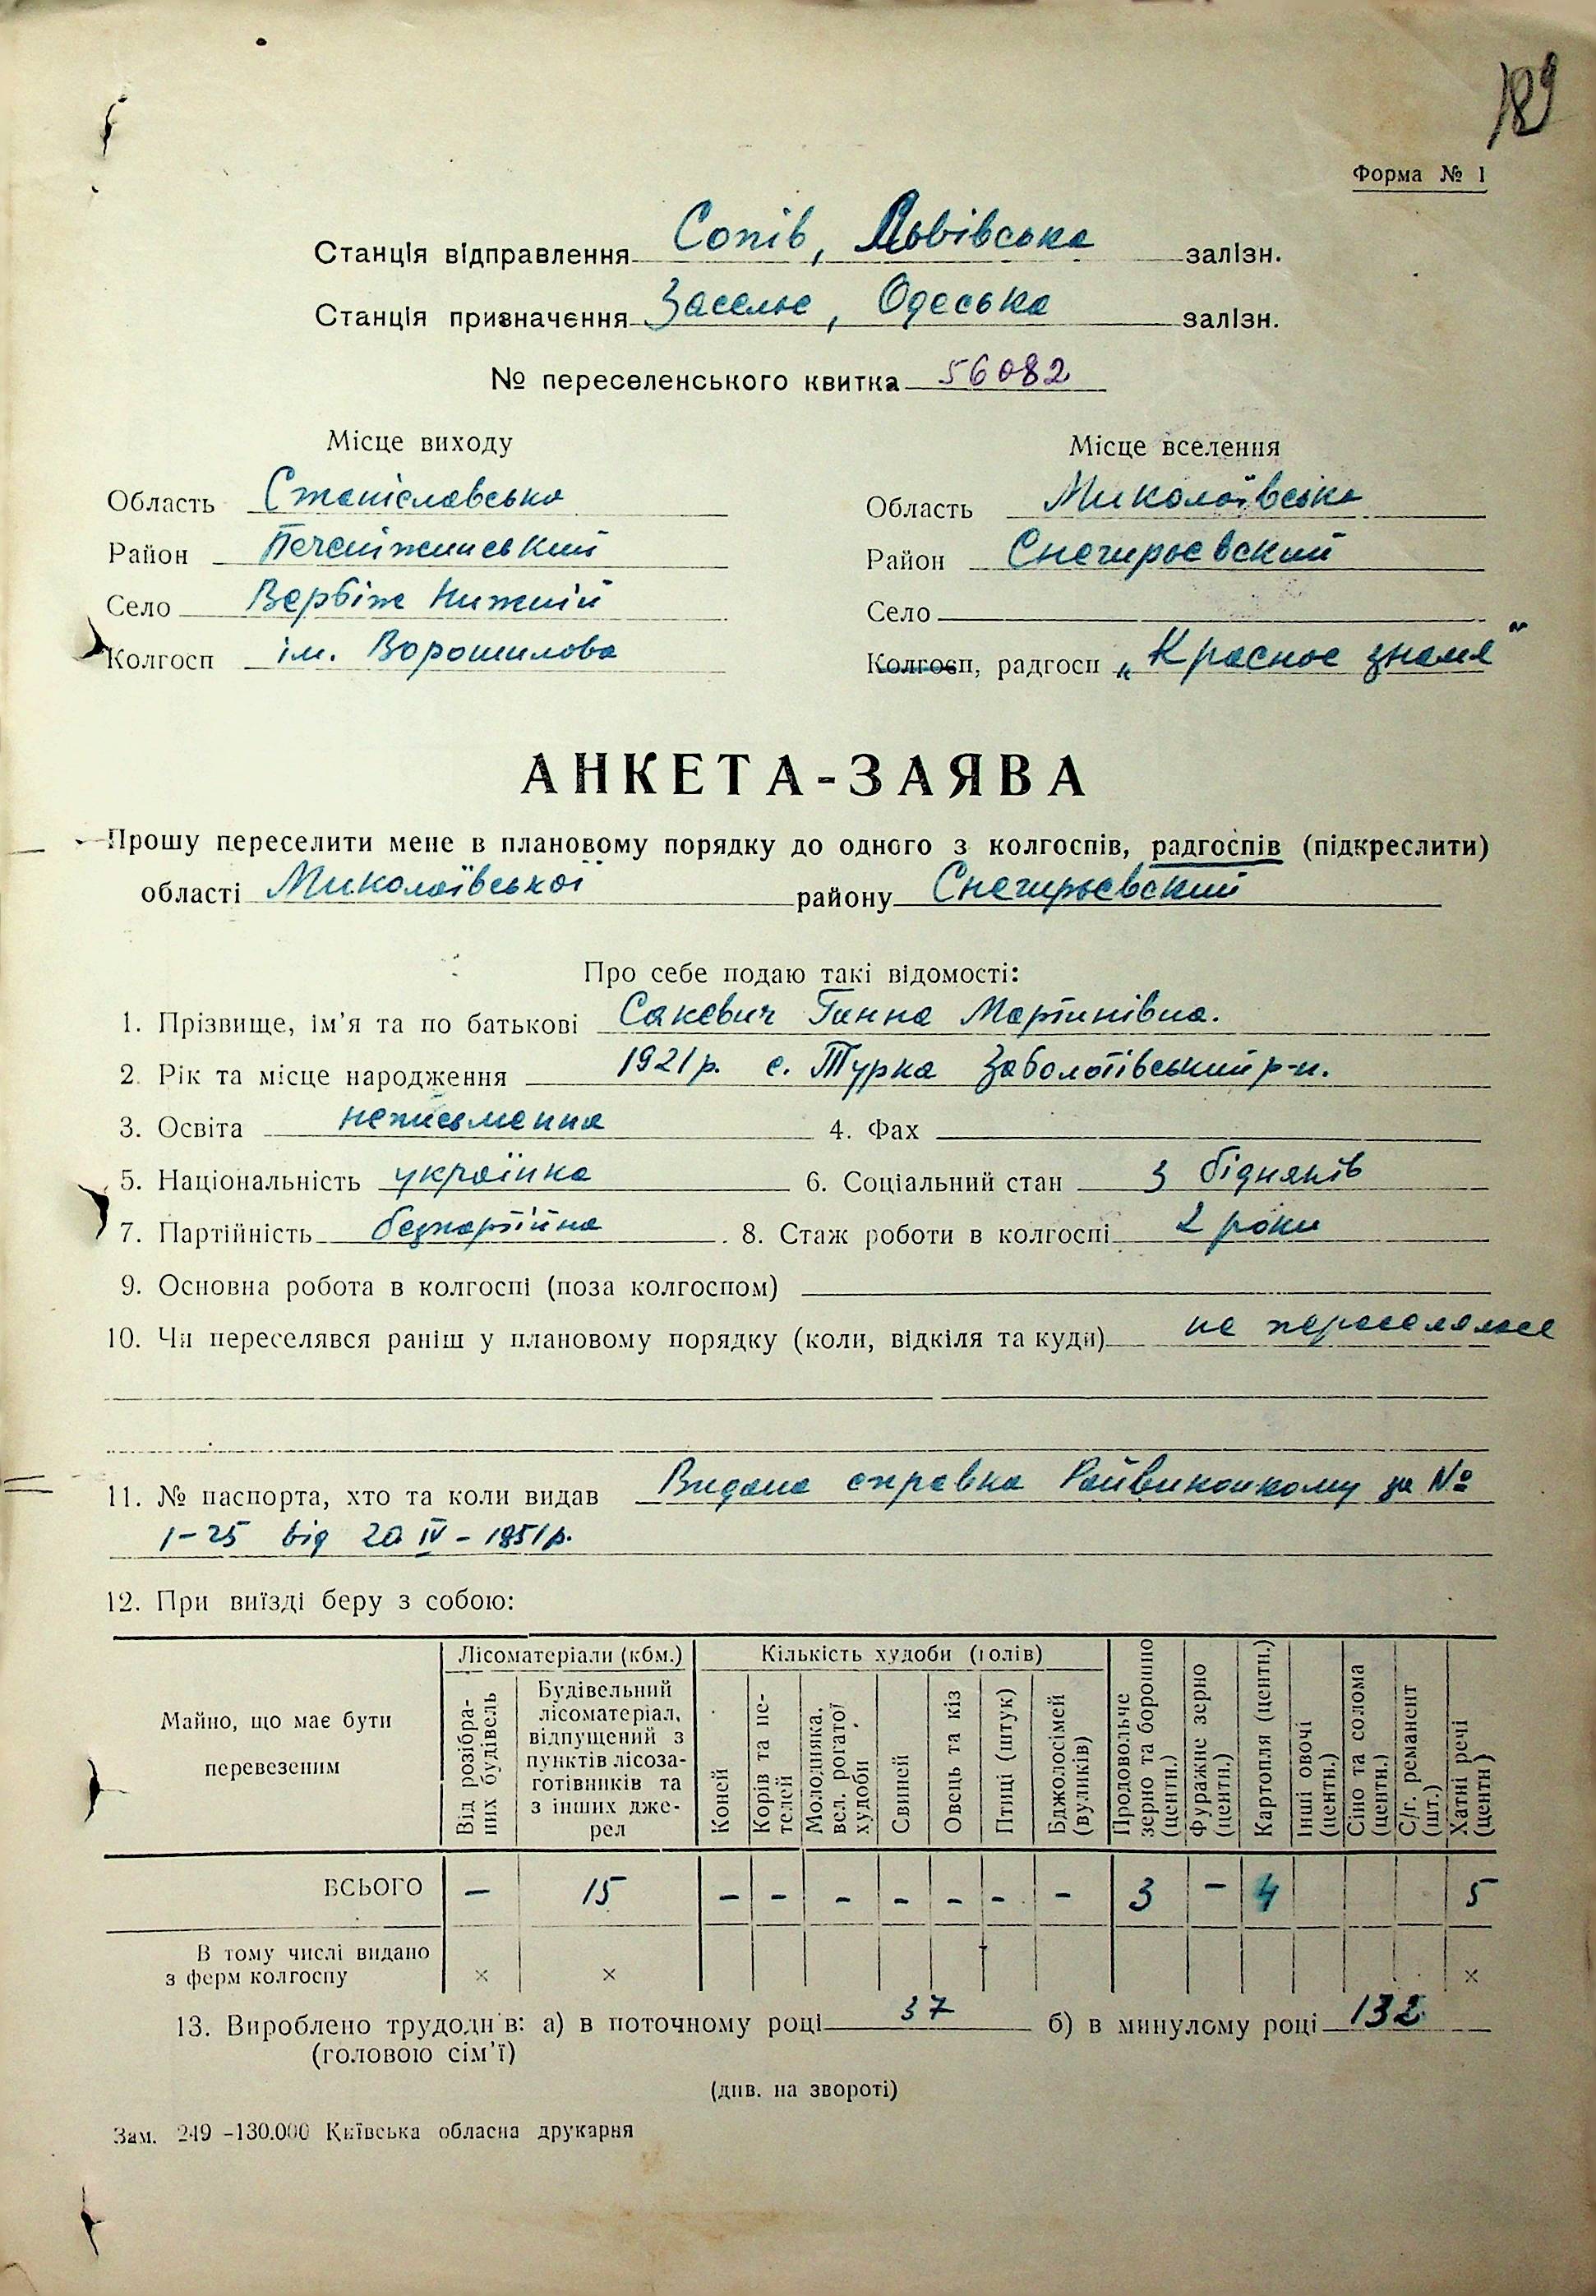 189
Форма № 1
Станція відправлення Сопів, Львівська залізн.
Станція призначення Заселье, Одеська залізн.
№ переселенського квитка 56082
Місце виходу
Місце вселення
Область Станіславська
Область Миколаївська
Район Печеніжинський
Район Снегирьевский
Село Вербіж Нижній
Село
Колгосп ім. Ворошилова
Колгосп, радгосп „Красное знамя"
АНКЕТА-ЗАЯВА
Прошу переселити мене в плановому порядку до одного з колгоспів, радгоспів (підкреслити)
області Миколаївської району Снегирьевский
Про себе подаю такі відомості:
1. Прізвище, ім'я та по батькові Сакевич Ганна Мартинівна.
2. Рік та місце народження 1921 р. с. Турка Заболотівський р-н.
3. Освіта неписьменна 4. Фах
5. Національність українка 6. Соціальний стан З бідняків
7. Партійність безпартійна 8. Стаж роботи в колгоспі 2 роки
9. Основна робота в колгоспі (поза колгоспом)
10. Чи переселявся раніш у плановому порядку (коли, відкіля та куди) не переселялася
11. № паспорта, хто та коли видав Видана справка Райвиконкому за №
1-25 від 20 IV - 1951 р.
12. При виїзді беру з собою:
Майно, що має бути перевезеним
Лісоматеріали (кбм.)
Від розібраних будівель
Будівельний лісоматеріал, відпущений з пунктів лісозаготівників та з інших джерел
Кількість худоби (голів)
Коней
Корів та нетелей
Молодняка, вел. рогатої худоби
Свиней
Овець та кіз
Птиці (штук)
Бджолосімей (вуликів)
Продовольче зерно та борошно (центн.)
Фуражне зерно (центн.)
Картопля (центн.)
Інші овочі (центн.)
Сіно та солома (центн.)
С/г. реманент (шт.)
Хатні речі (центн)
ВСЬОГО – 15 – – – – – – – 3 – 4 5
В тому числі видано
з ферм колгоспу × × ×
13. Вироблено трудоднів: а) в поточному році 37 б) в минулому році 132
(головою сім'ї)
(див. на звороті)
Зам. 249 –130.000 Київська обласна друкарня